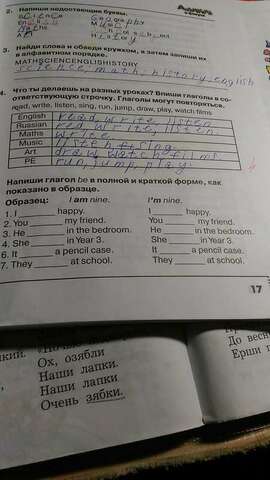 2. Напиши недостающие буквы.
Science Geography
English Music
Maths
Art History
3. Найди слова и обведи кружком, а затем запиши их
в алфавитном порядке.
MATHSCIENCENGLISHISTORY
science, maths, history, english
4. Что ты делаешь на разных уроках? Впиши глаголы в со-
ответствующую строчку. Глаголы могут повторяться.
read, write, listen, sing, run, jump, draw, play, watch films
English read, write, listen
Russian red, write, listen.
Maths write
Music listen, sing.
Art draw, watch films
PE run, jump, play
Напиши глагол be в полной и краткой форме, как
показано в образце.
Образец: I am nine. I'm nine.
1. I ______ happy. I ______ happy.
2. You ______ my friend. You ______ my friend.
3. He ______ in the bedroom. He ______ in the bedroom.
4. She ______ in Year 3. She ______ in Year 3.
6. It ______ a pencil case. It ______ a pencil case.
7. They ______ at school. They ______ at school.
17
Ох, озябли
Наши лапки
Наши лапки
Очень зябки.
До весн
Ерши г